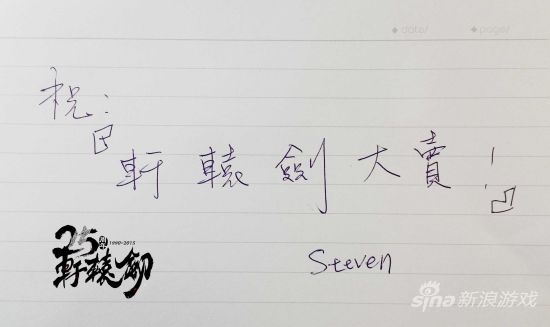 date/ page/
祝：
「軒轅劍大賣！」
25 1990-2015
軒轅劍
Steven
sina新浪游戏